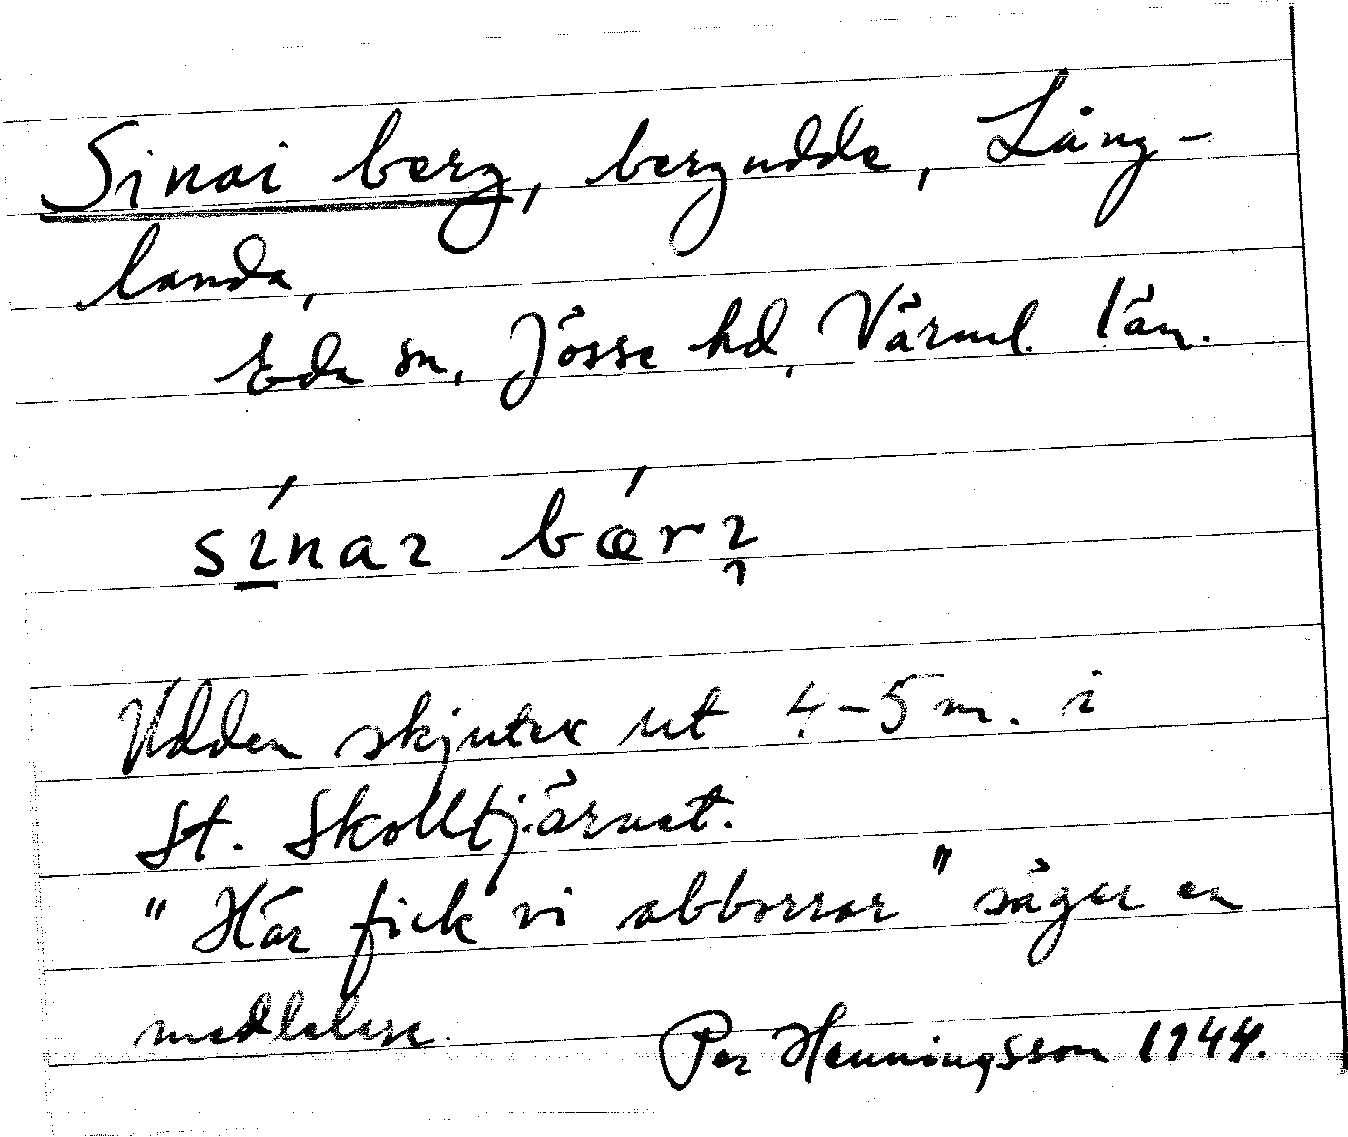 Sinai berg, bergudde, Lång-
landa,
Eda sn, Jösse hd, Värml. län.
sínaı bǽrı̨
Udden skjuter ut 4-5 m. i
St. Skolltjärnet.
"Här fick vi abborrar" säger en
medlelare.
Per Henningsson 1944.